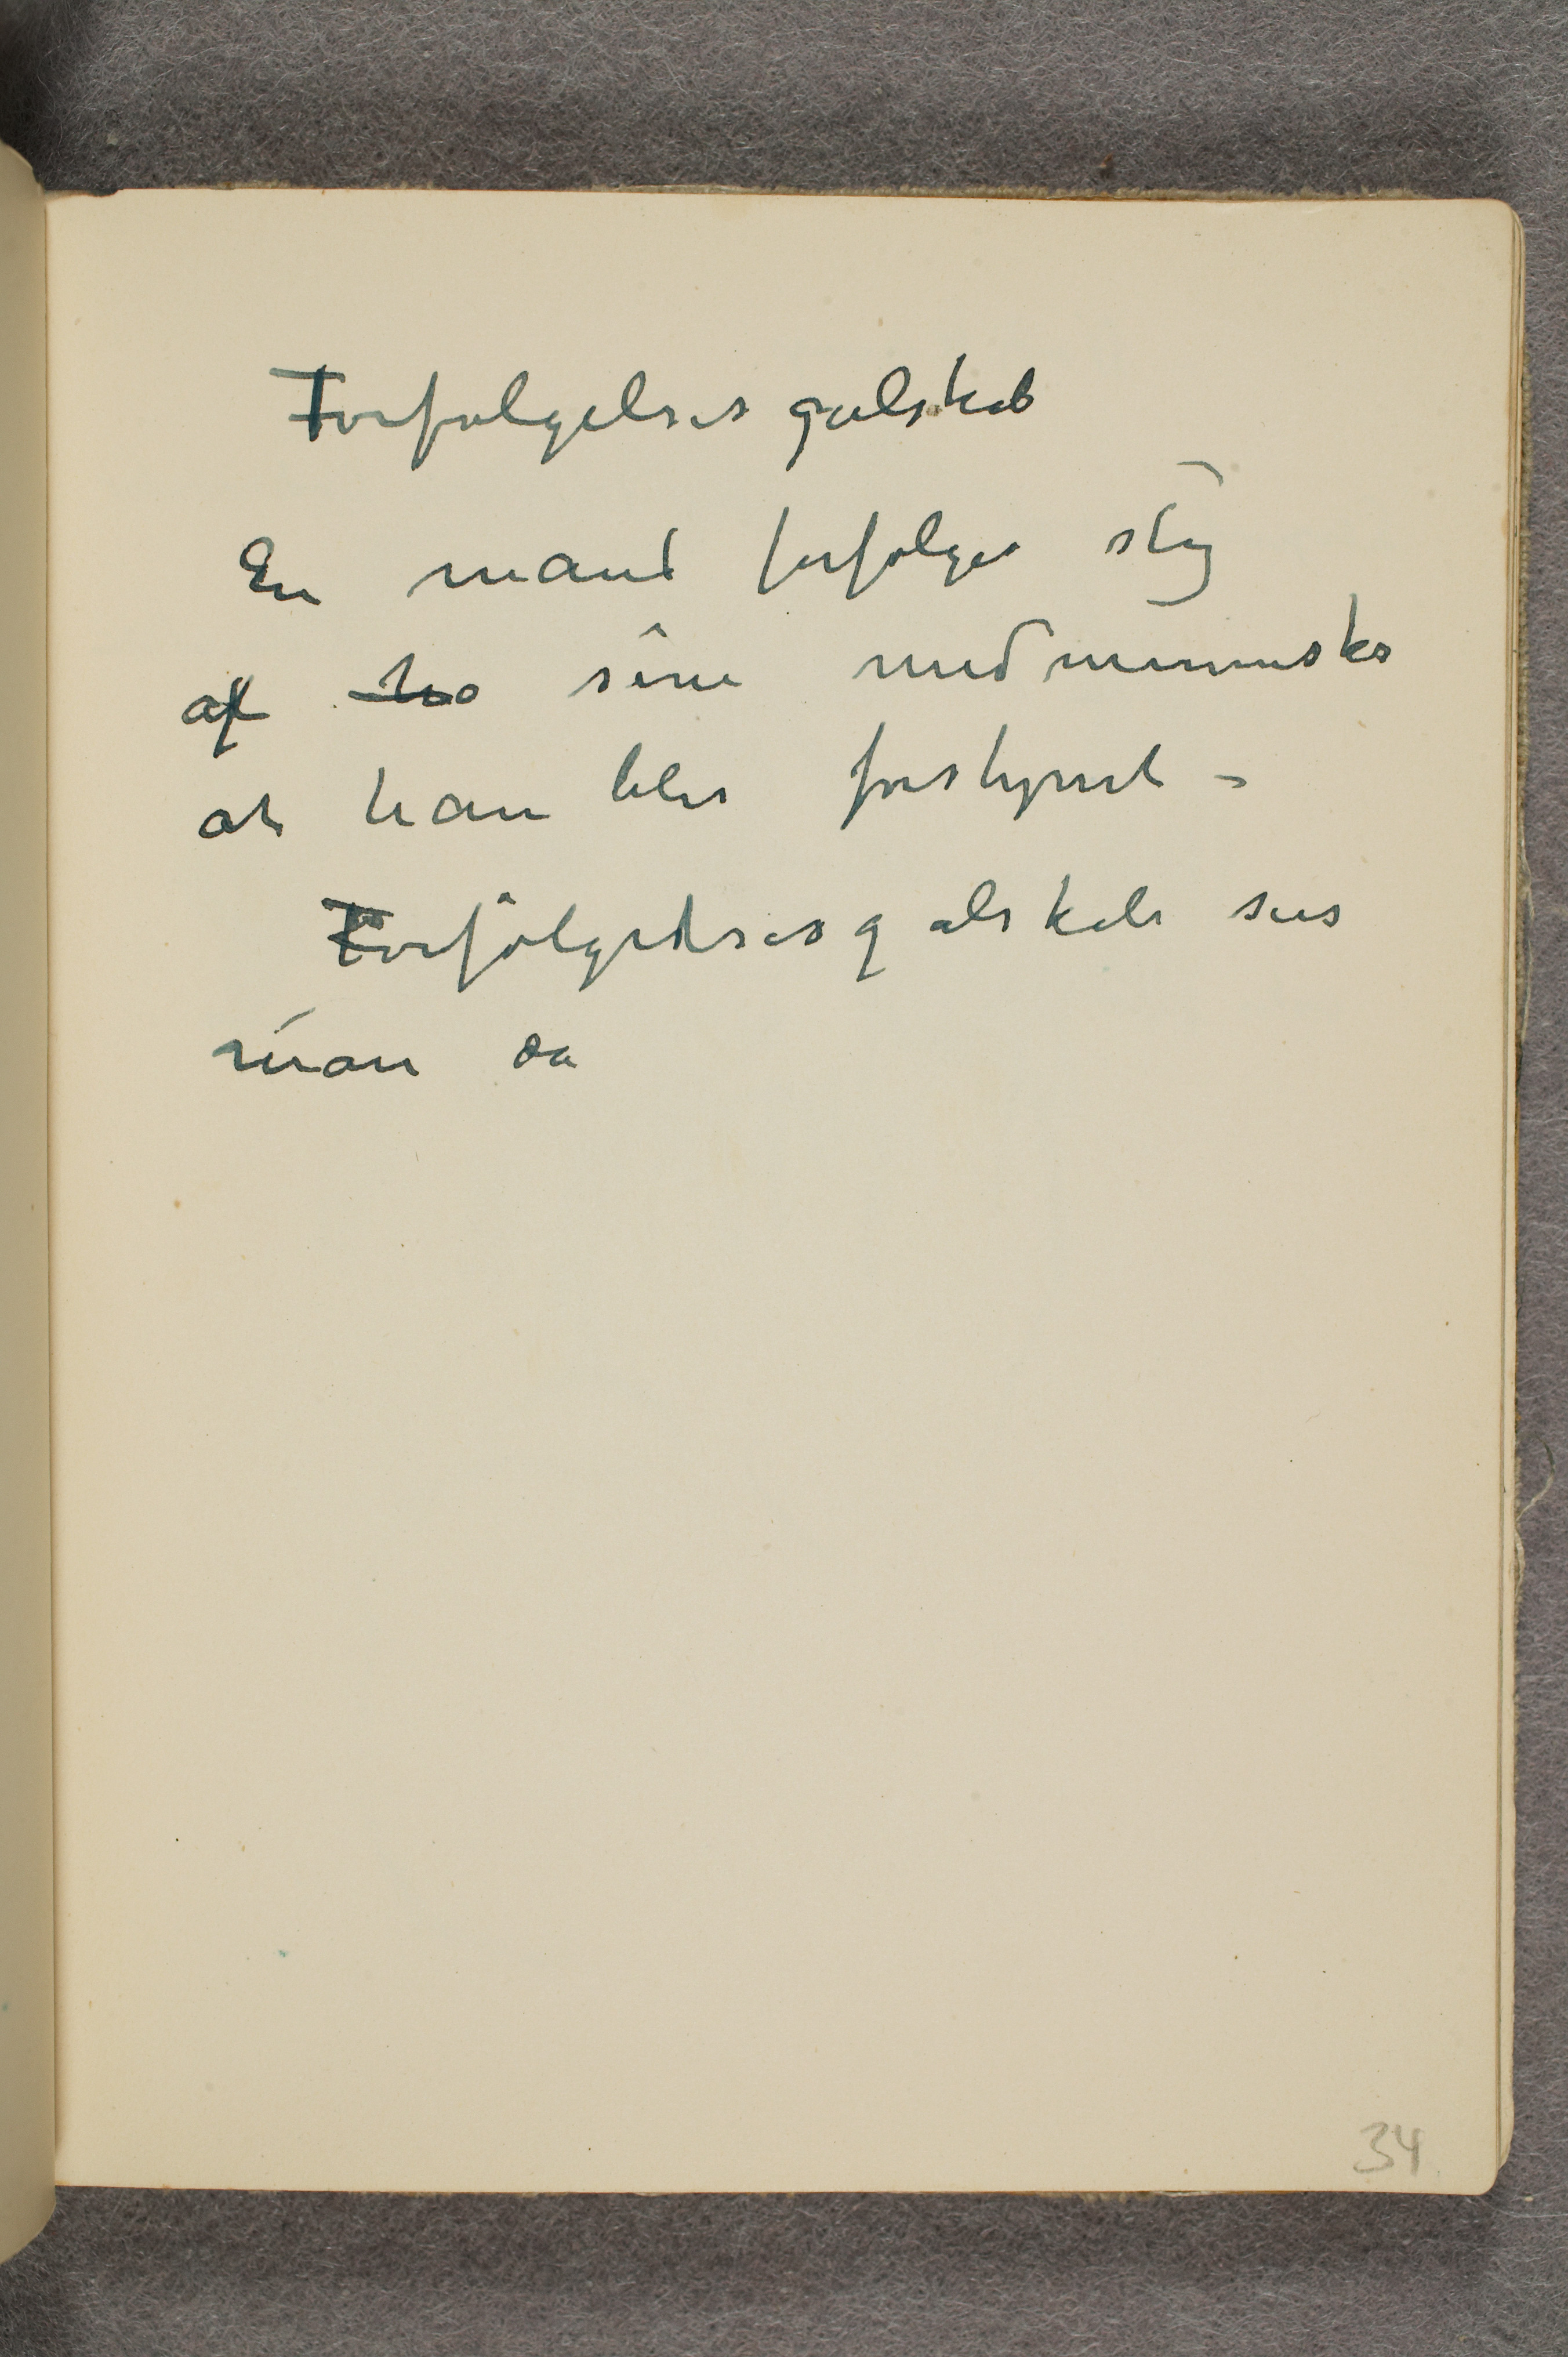 Forfølgelsesgalskab
En mand forfølges slig
af sine medmennesker
at han blir forstyrret –
Forfølgelsesgalskab sies
man da
34